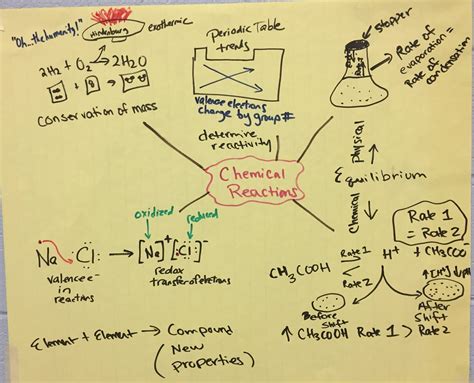 "Oh...the humanity!"
Hindenburg
exothermic
2H₂ + O₂ → 2H₂O
conservation of mass
Periodic Table
trends
valence electrons
change by group #
determine
reactivity
stopper
Rate of
evaporation =
Rate of
condensation
Chemical
Reactions
Physical
Equilibrium
Chemical
Rate 1
= Rate 2
CH₃COOH
Rate 1
Rate 2
H⁺ + CH₃COO
Before
shift
After
Shift
↑ CH₃COOH Rate 1 > Rate 2
oxidized
reduced
Na Cl
[Na]⁺ [Cl]⁻
valence e-
in
reactions
redox
transfer of electrons
Element + Element → Compound
(New
properties)